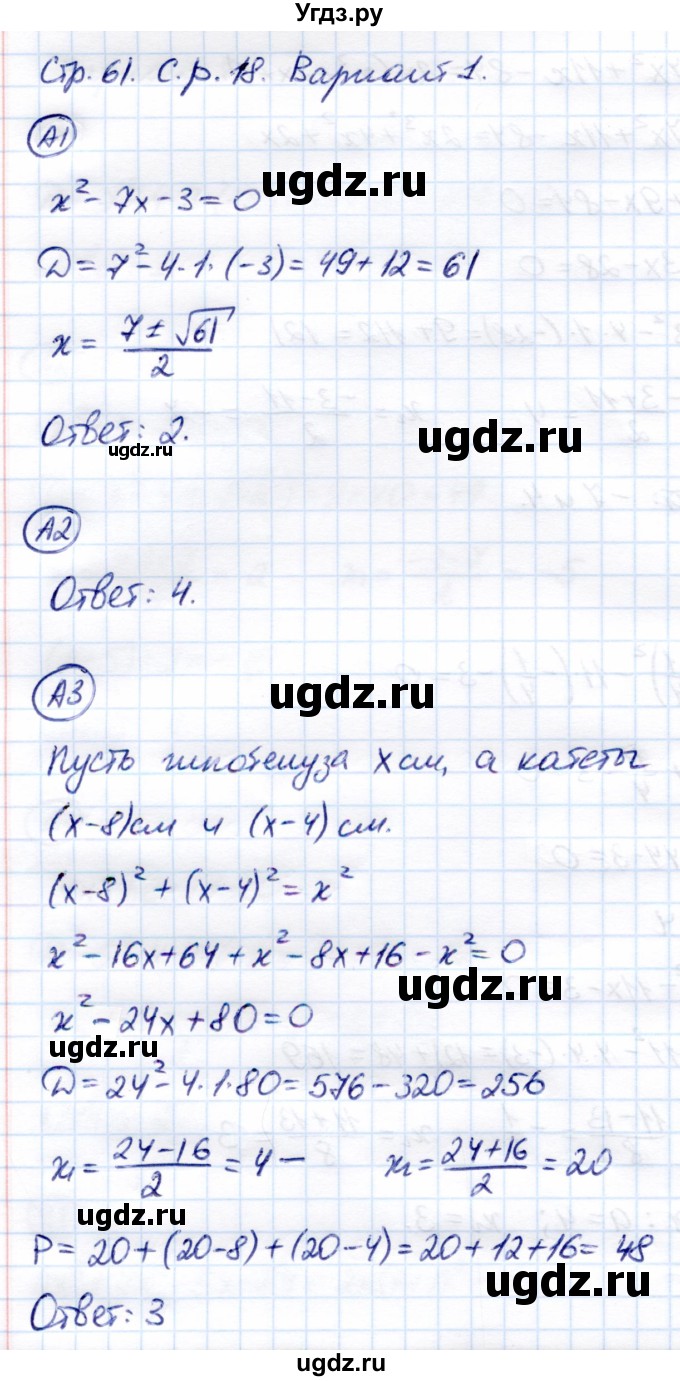 Угдз.ру
Стр. 61. С.р. 18. Вариант 1.
А1
ugdz.ru
x² - 7x - 3 = 0
D = 7² - 4·1·(-3) = 49 + 12 = 61
x = (7 ± √61)/2
Ответ: 2.
ugdz.ru
ugdz.ru
А2
Ответ: 4.
А3
ugdz.ru
Пусть гипотенуза x см, а катеты
(x-8)см и (x-4) см.
(x-8)² + (x-4)² = x²
x² - 16x + 64 + x² - 8x + 16 - x² = 0
ugdz.ru
x² - 24x + 80 = 0
ugdz.ru
D = 24² - 4·1·80 = 576 - 320 = 256
x₁ = (24-16)/2 = 4 — x₂ = (24+16)/2 = 20
ugdz.ru
P = 20 + (20-8) + (20-4) = 20 + 12 + 16 = 48
ugdz.ru
Ответ: 3
ugdz.ru